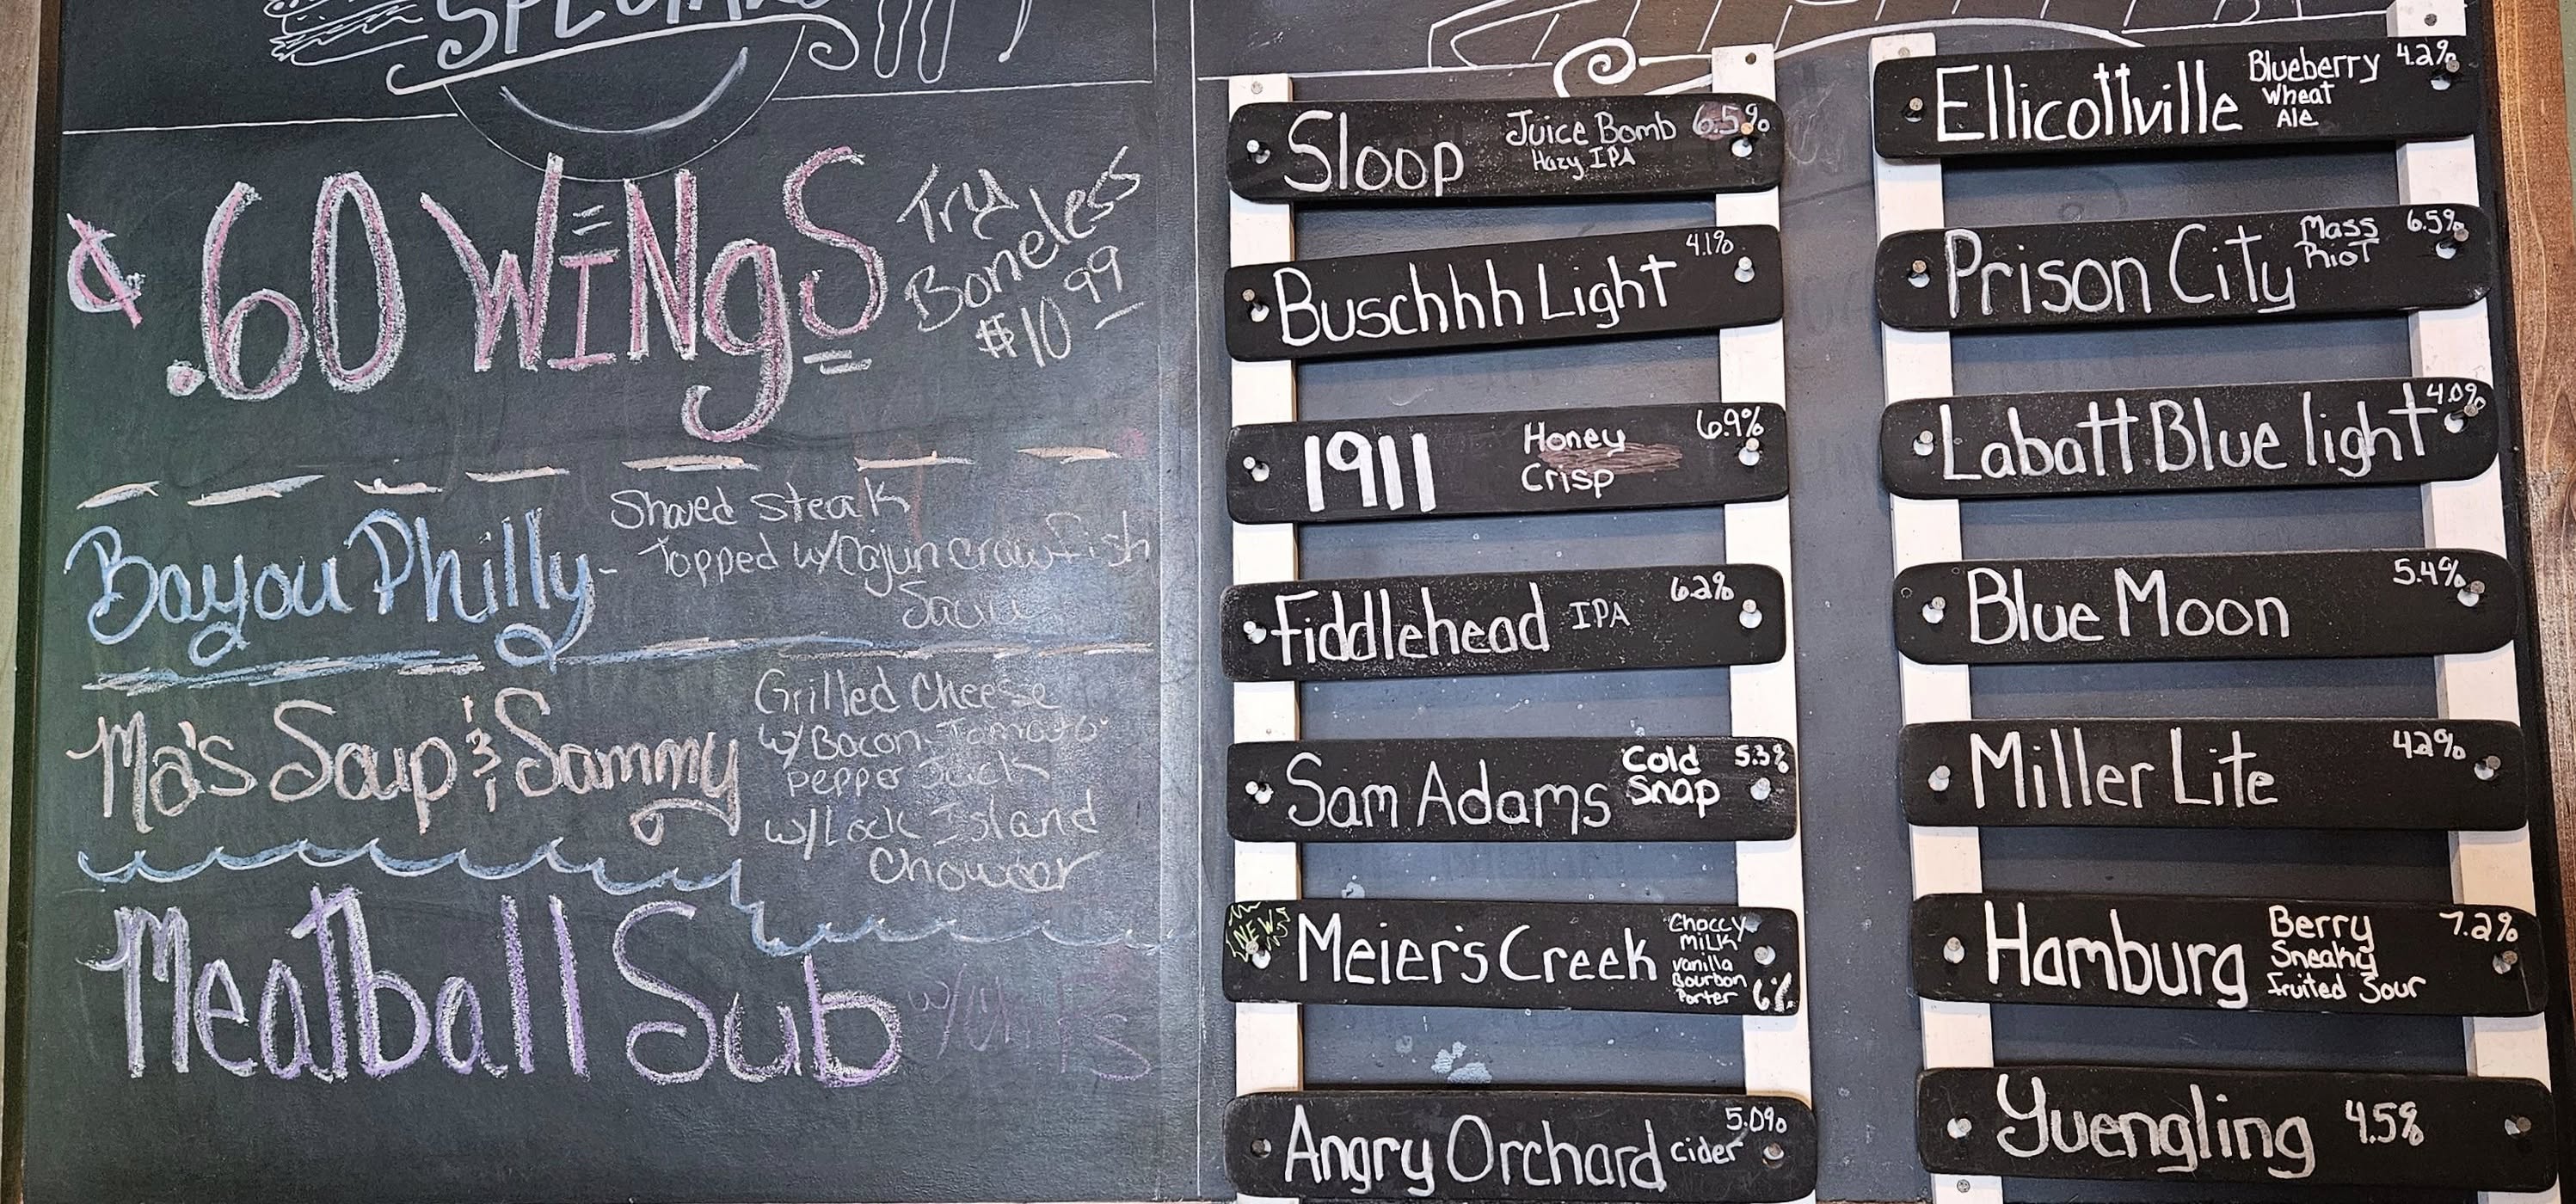 SPECIALS
¢.60 WINgS
Try
Boneless
$10 99
Bayou Philly -
Shaved steak
Topped w/Cajun crawfish
Ma's Soup & Sammy
Grilled Cheese
w/Bacon, Tomato
pepper Jack
w/Lock Island
Chowder
Meatball Sub
Sloop Juice Bomb 6.5%
Hazy IPA
Buschhh Light 4.1%
1911 Honey 6.9%
Crisp
Fiddlehead IPA 6.2%
Sam Adams Cold 5.3%
Snap
NEW
Meier's Creek Choccy
MiLK
vanilla
Bourbon
Porter 6%
Angry Orchard cider 5.0%
Ellicottville Blueberry 4.2%
Wheat
Ale
Prison City Mass 6.5%
Riot
Labatt Blue light 4.0%
Blue Moon 5.4%
Miller Lite 4.2%
Hamburg Berry 7.2%
Sneaky
Fruited Sour
Yuengling 4.5%